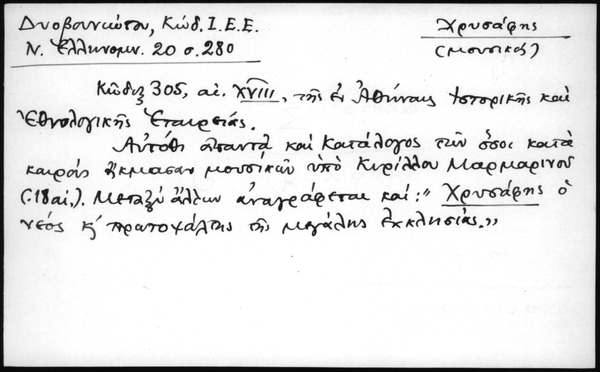 Δυοβουνιώτου, Κώδ. Ι.Ε.Ε.
Ν. Ἑλληνομν. 20 σ. 280
Χρυσάφης
(μουσικός)
Κῶδιξ 305, αἰ. XVIII, τῆς ἐν Ἀθήναις Ἱστορικῆς καὶ
Ἐθνολογικῆς Ἑταιρείας.
Αὐτόθι ἀπαντᾷ καὶ κατάλογος τῶν ὅσοι κατὰ
καιροὺς ἤκμασαν μουσικῶν ὑπὸ Κυρίλλου Μαρμαρινοῦ
(18 αἰ.). Μεταξὺ ἄλλων ἀναγράφεται καί: "Χρυσάφης ὁ
νέος κ' πρωτοψάλτης τῆς μεγάλης ἐκκλησίας."